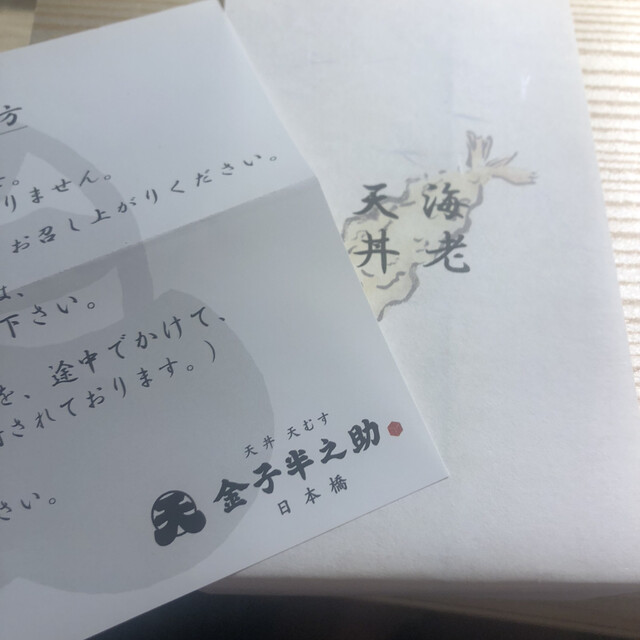 方
。
りません。
お召し上がりください。
は、
下さい。
を、途中でかけて、
されております。)
さい。
天丼 天むす
天 金子半之助
日本橋
海老
天丼